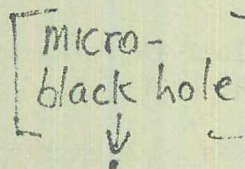 micro-
black hole